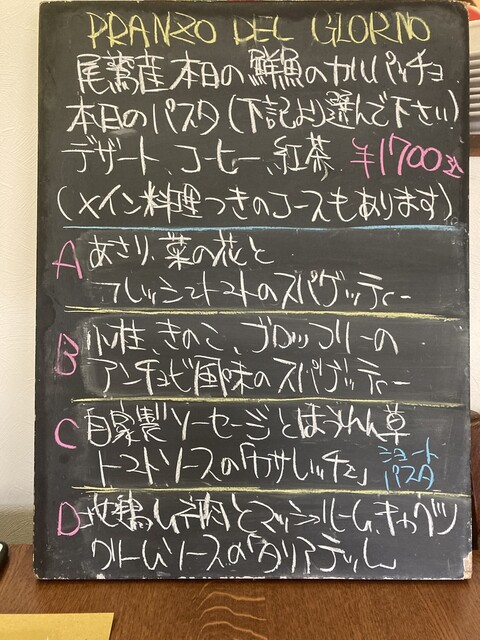 PRANZO DEL GIORNO
尾鷲産本日の鮮魚のカルパッチョ
本日のパスタ(下記より選んで下さい)
デザート、コーヒー、紅茶 ¥1700込
(メイン料理つきのコースもあります)
A あさり、菜の花と
フレッシュトマトのスパゲッティー
B 小柱、きのこ、ブロッコリーの
アンチョビ風味のスパゲッティー
C 自家製ソーセージとほうれん草
トマトソースの「カサレッチェ」 ショートパスタ
D とマッシュルーム、キャベツ
クリームソースの「タリアテッレ」